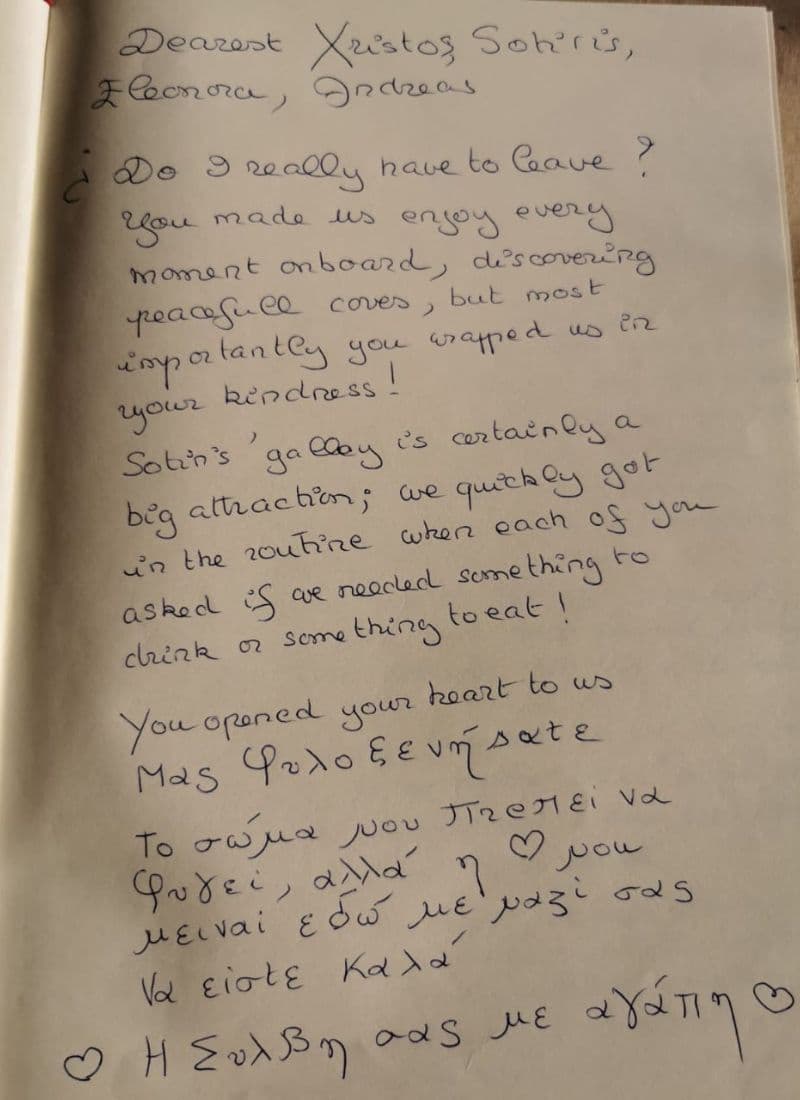 Dearest Χristos Sotiris,
Eleonora, Andreas
¿ Do I really have to leave ?
You made us enjoy every
moment onboard, discovering
peacefull coves, but most
importantly you wrapped us in
your kindness !
Sotiri's 'galley is certainly a
big attraction ; we quickly got
in the routine when each of you
asked if we needed something to
drink or something to eat !
You opened your heart to us
Μας φυλοξενήσατε
Το σώμα μου πρεπει να
φυγει, αλλά η ♡ μου
μειναι εδώ με μαζι σας
Να είστε καλά
♡ Η Συλβη σας με αγάπη ♡